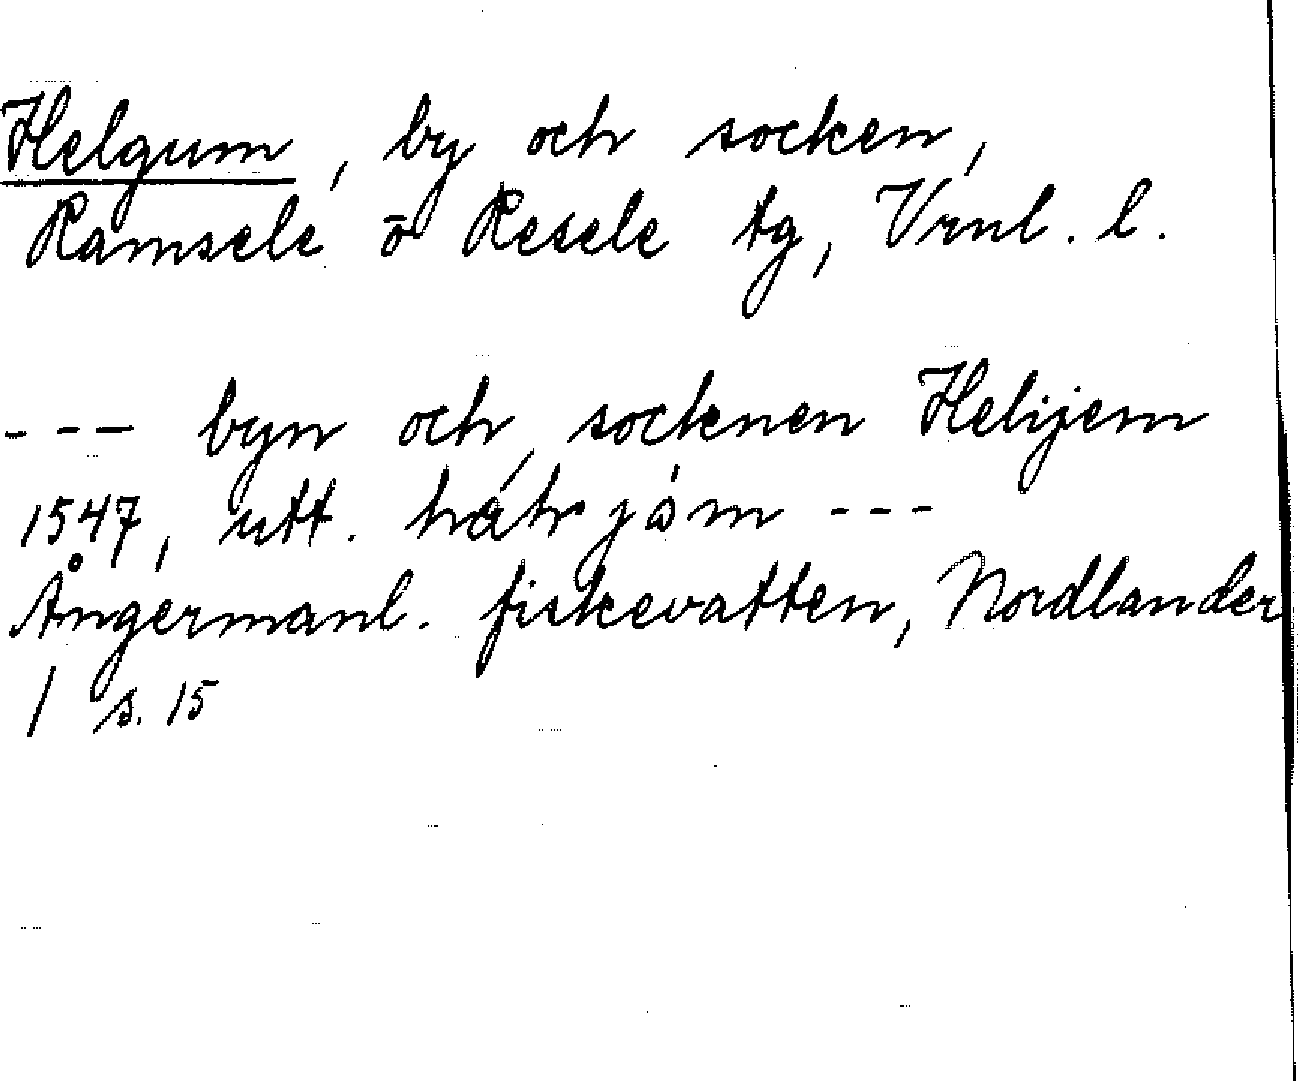 Helgum, by och socken,
Ramsele o Resele tg, Vrnl. l.
--- byn och socknen Helijem
1547, utt. jäm ---
Ångermanl. fiskevatten, Nordlander
1 s. 15